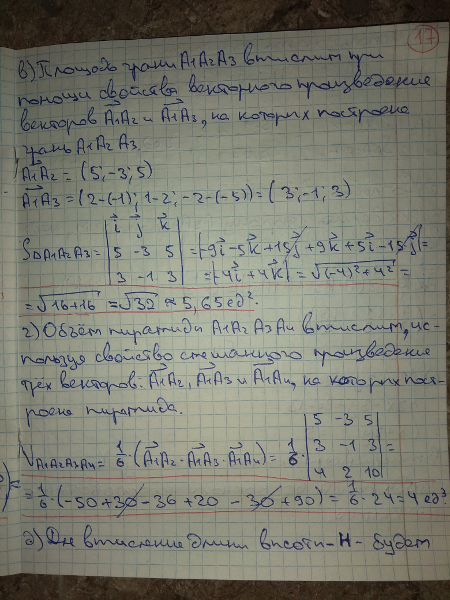 17
в) Площадь грани A₁A₂A₃ вычислим при
помощи свойства векторного произведение
векторов A₁A₂ и A₁A₃, на которых построена
грань A₁A₂A₃.
A₁A₂ = (5; -3; 5)
A₁A₃ = (2-(-1); 1-2; -2-(-5)) = (3; -1; 3)
i j k
S△A₁A₂A₃ = |5 -3 5| = |-9i - 5k + 15j + 9k + 5i - 15j| =
3 -1 3 = |-4i + 4k| = √(-4)² + 4² =
= √16+16 = √32 ≈ 5,65 ед².
г) Объём пирамиды A₁A₂A₃A₄ вычислим, ис-
пользуя свойство смешанного произведение
трёх векторов: A₁A₂, A₁A₃ и A₁A₄, на которых пост-
роена пирамида.
5 -3 5
V A₁A₂A₃A₄ = 1/6 · (A₁A₂ · A₁A₃ · A₁A₄) = 1/6 · |3 -1 3| =
4 2 10
= 1/6 · (-50 + 30 - 36 + 20 - 30 + 90) = 1/6 · 24 = 4 ед³
д) Для вычисление длины высоты - H - будем